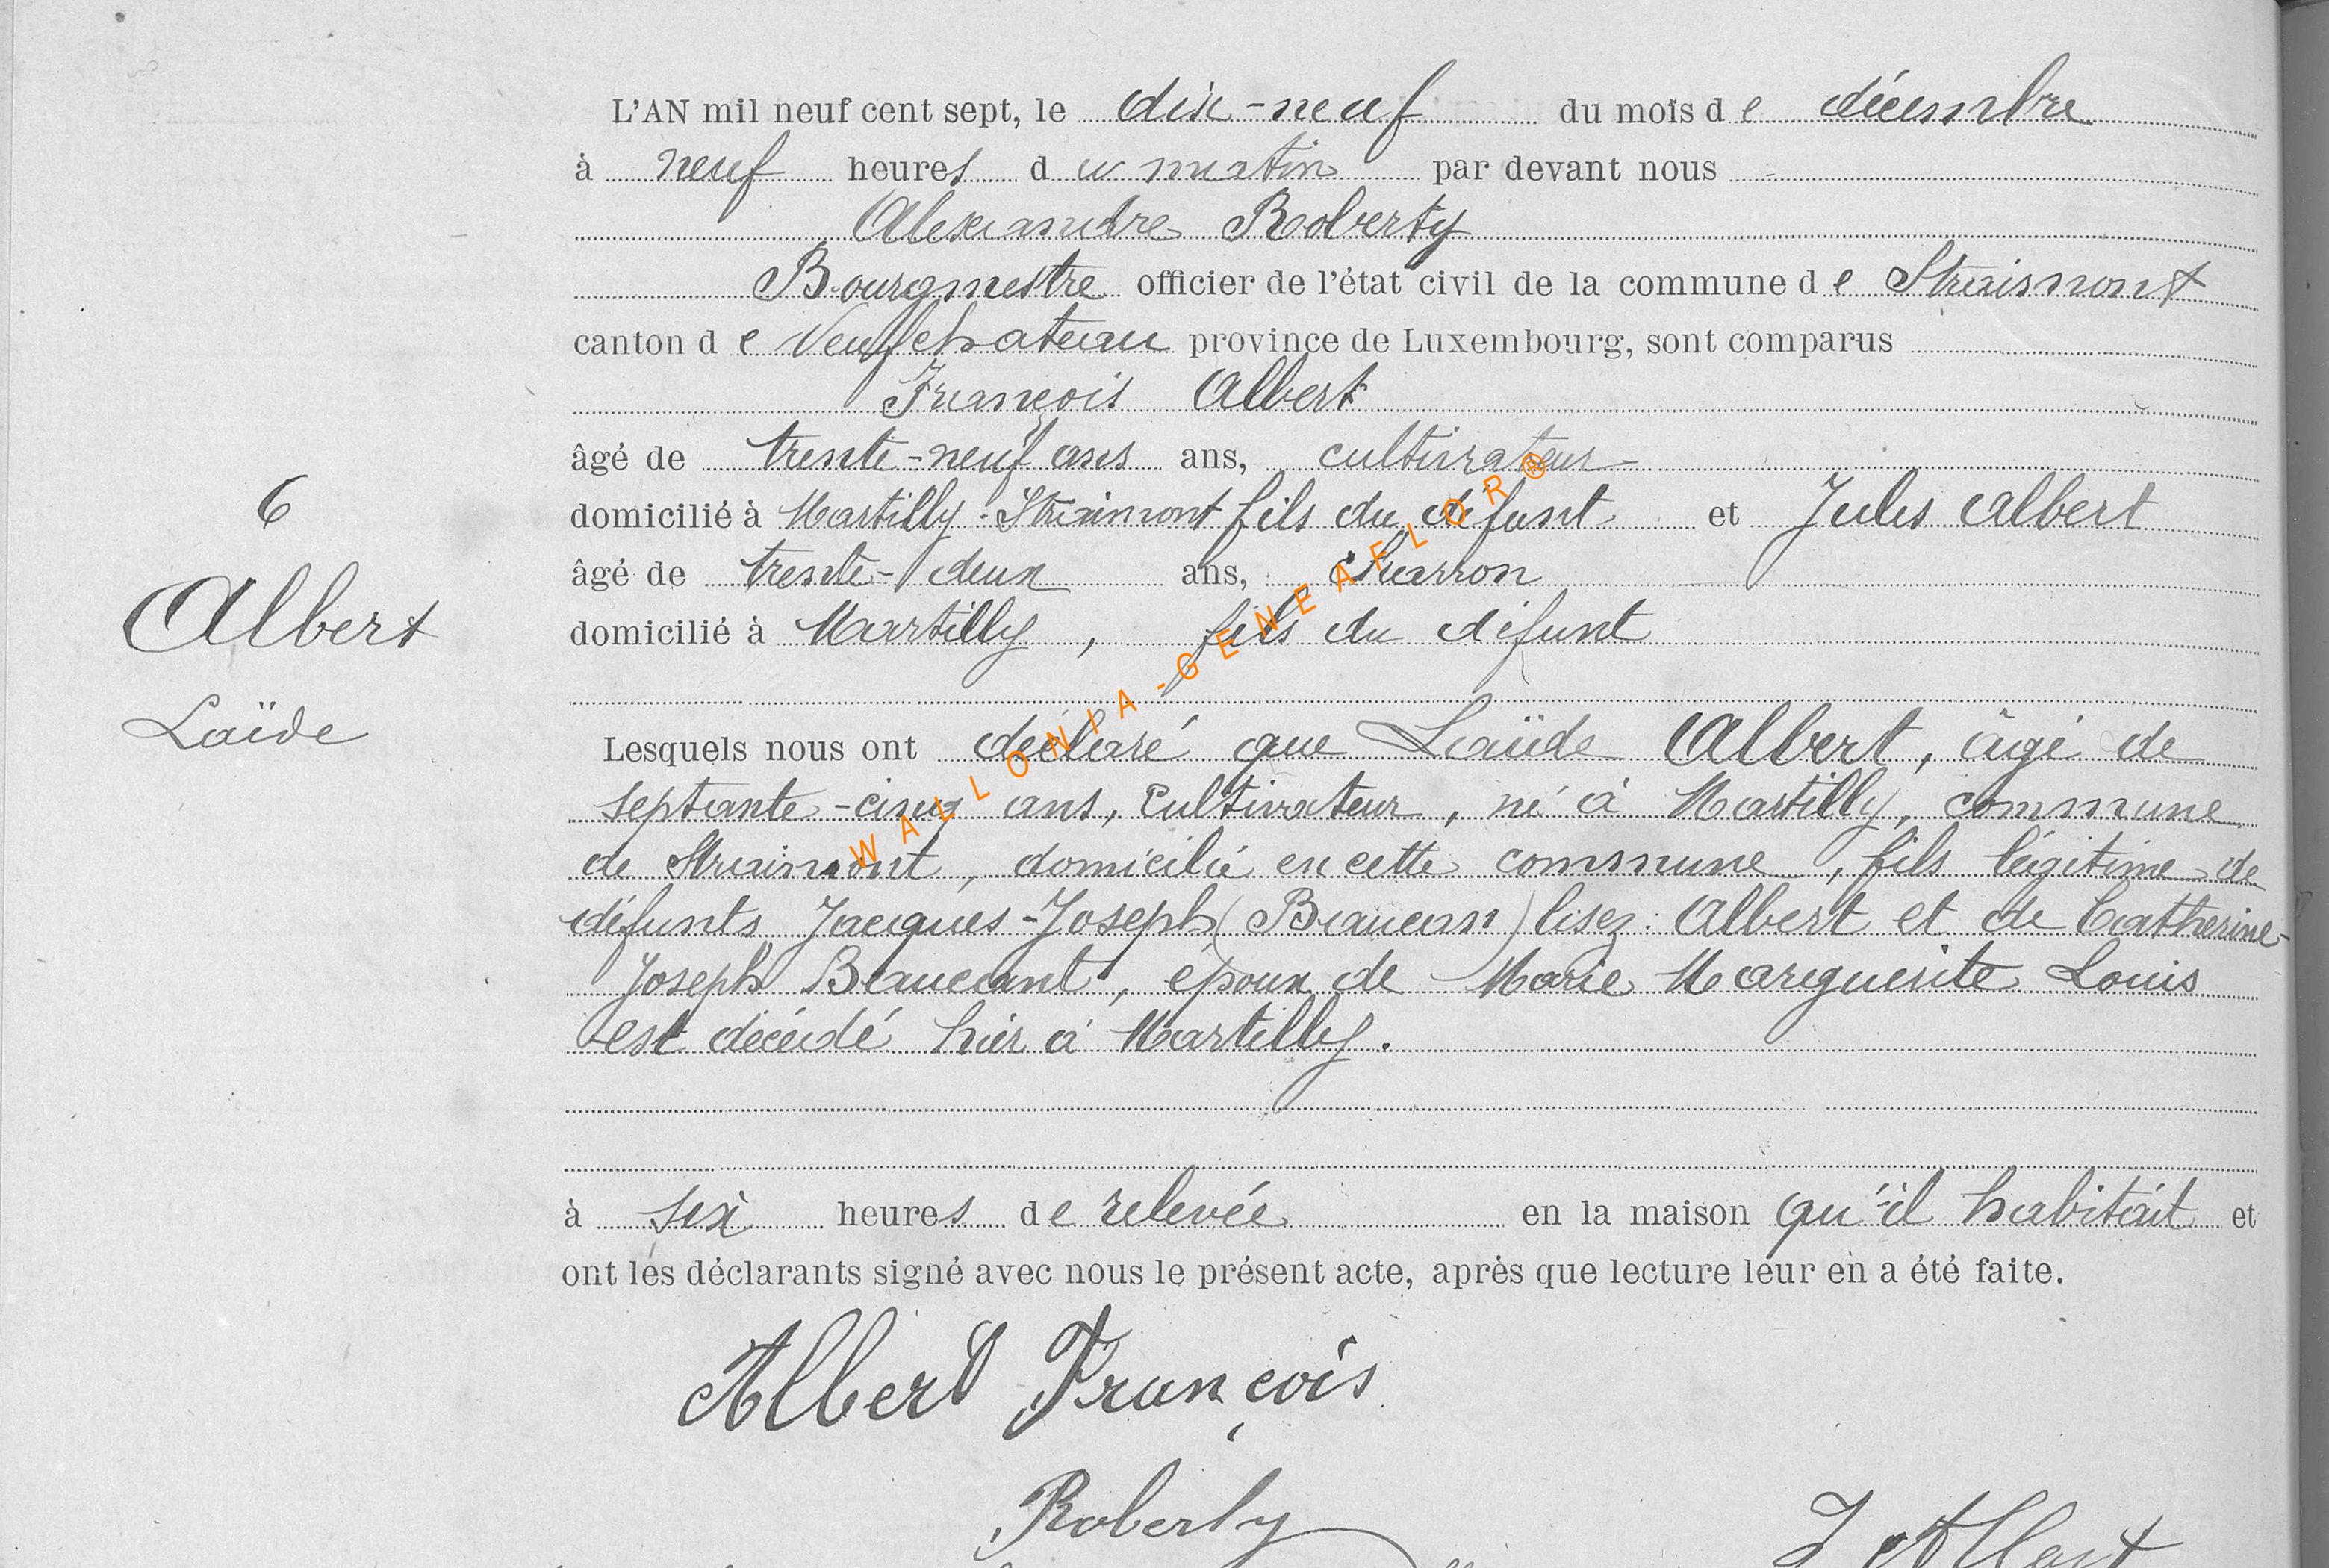 L'AN mil neuf cent sept, le dix-neuf du mois de décembre
à neuf heures du matin par devant nous
Alexandre Roberty
Bourgmestre officier de l'état civil de la commune de Straismont
canton de Neufchateau province de Luxembourg, sont comparus
François Albert
âgé de trente-neuf ans ans, cultivateur
domicilié à Martilly-Straimont fils du défunt et Jules Albert
âgé de trente-deux ans, charron
domicilié à Martilly, fils du défunt
6
Albert
Laïde
Lesquels nous ont déclaré que Laïde Albert, âgé de
septante-cinq ans, cultivateur, né à Martilly, commune
de Straimont, domicilié en cette commune, fils légitime de
défunts Jacques-Joseph (Beaucan) lisez: Albert et de Catherine-
Joseph Beaucant, époux de Marie Marguerite Louis
est décédé hier à Martilly.
à six heures de relevée en la maison qu'il habitait et
ont les déclarants signé avec nous le présent acte, après que lecture leur en a été faite.
Albert François
Roberty
J Albert
WALLONIA-GENEAFLOR®